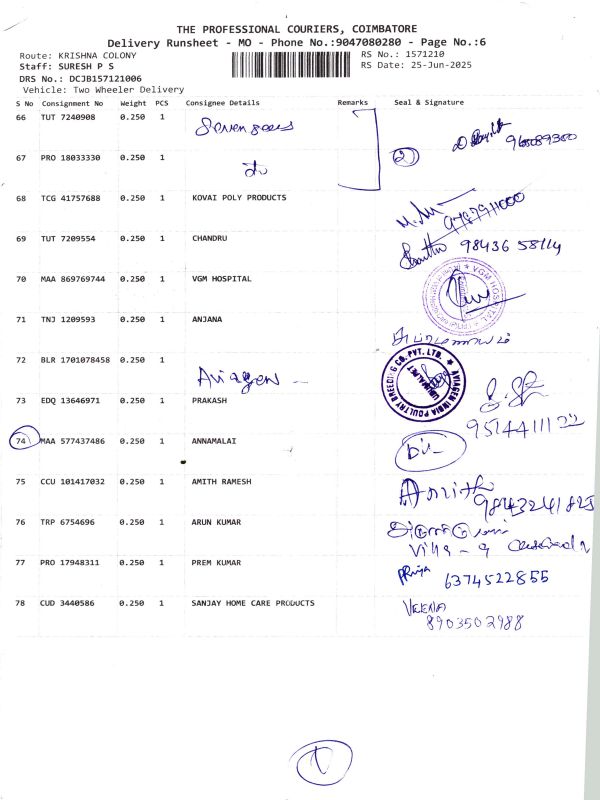 THE PROFESSIONAL COURIERS, COIMBATORE
Delivery Runsheet - MO - Phone No.:9047080280 - Page No.:6
Route: KRISHNA COLONY RS No.: 1571210
Staff: SURESH P S RS Date: 25-Jun-2025
DRS No.: DCJB157121006
Vehicle: Two Wheeler Delivery
S No Consignment No Weight PCS Consignee Details Remarks Seal & Signature
66 TUT 7240908 0.250 1
67 PRO 18033330 0.250 1 2
68 TCG 41757688 0.250 1 KOVAI POLY PRODUCTS
9787911000
69 TUT 7209554 0.250 1 CHANDRU 98436 58114
70 MAA 869769744 0.250 1 VGM HOSPITAL VGM HOSPITAL
71 TNJ 1209593 0.250 1 ANJANA
72 BLR 1701078458 0.250 1 Aviagen AVIAGEN INDIA POULTRY BREEDING CO. PVT. LTD.
UDUMALPET
73 EDQ 13646971 0.250 1 PRAKASH
74 MAA 577437486 0.250 1 ANNAMALAI
75 CCU 101417032 0.250 1 AMITH RAMESH Amrith
9843241825
76 TRP 6754696 0.250 1 ARUN KUMAR
77 PRO 17948311 0.250 1 PREM KUMAR Priya 6374522855
78 CUD 3440586 0.250 1 SANJAY HOME CARE PRODUCTS VEENA
8903502988